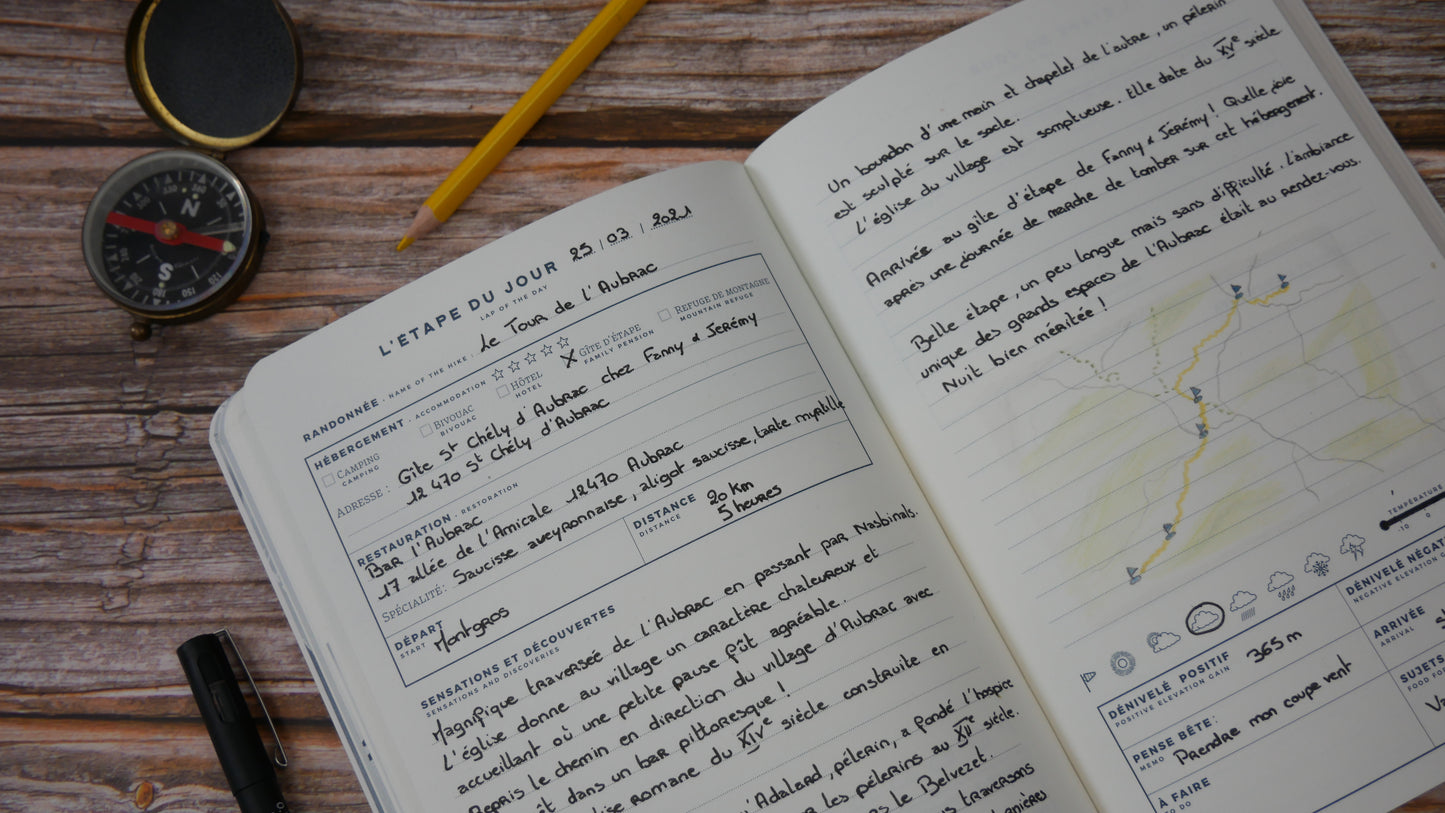 L'ÉTAPE DU JOUR 25 / 03 / 2021
LAP OF THE DAY
RANDONNÉE · NAME OF THE HIKE : Le Tour de l'Aubrac
HÉBERGEMENT · ACCOMMODATION
CAMPING
CAMPING
BIVOUAC
BIVOUAC
HÔTEL
HOTEL
GÎTE D'ÉTAPE
FAMILY PENSION
REFUGE DE MONTAGNE
MOUNTAIN REFUGE
ADRESSE : Gite St Chély d'Aubrac chez Fanny & Jérémy
12 470 St Chély d'Aubrac
RESTAURATION · RESTORATION
Bar l'Aubrac
17 allée de l'Amicale 12470 Aubrac
SPÉCIALITÉ : Saucisse aveyronnaise, aligot saucisse, tarte myrtille
DISTANCE
DISTANCE
20 km
5 heures
DÉPART
START
Montgros
SENSATIONS ET DÉCOUVERTES
SENSATIONS AND DISCOVERIES
Magnifique traversée de l'Aubrac en passant par Nasbinals.
L'église donne au village un caractère chaleureux et
accueillant où une petite pause fût agréable.
Repris le chemin en direction du village d'Aubrac avec
dans un bar pittoresque !
romane du XIVe siècle construite en
Adalard, pélerin, a fondé l'hospice
les pélerins au XIIe siècle.
le Belvezet.
traversons
Un bourdon d'une main et chapelet de l'autre, un pélerin
est sculpté sur le socle.
L'église du village est somptueuse. Elle date du XVe siècle
Arrivés au gîte d'étape de Fanny & Jérémy ! Quelle joie
après une journée de marche de tomber sur cet hébergement.
Belle étape, un peu longue mais sans difficulté. L'ambiance
unique des grands espaces de l'Aubrac était au rendez-vous.
Nuit bien méritée !
TEMPÉRATURE
-10 0
DÉNIVELÉ POSITIF
POSITIVE ELEVATION GAIN
365 m
DÉNIVELÉ
NEGATIVE ELEVATION
ARRIVÉE
ARRIVAL
PENSE BÊTE :
MEMO
Prendre mon coupe vent
SUJETS
À FAIRE
TO DO
N
S